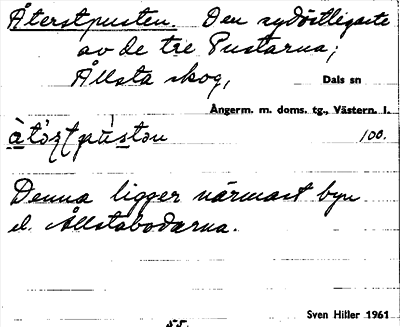 Återstpusten. Den sydöstligaste
av de tre Pustarna;
Ållsta skog,
Dals sn
Ångerm. m. doms. tg., Västern. l.
100.
Denna ligger närmast byn
el. Ållstabodarna.
Sven Hiller 1961
55.